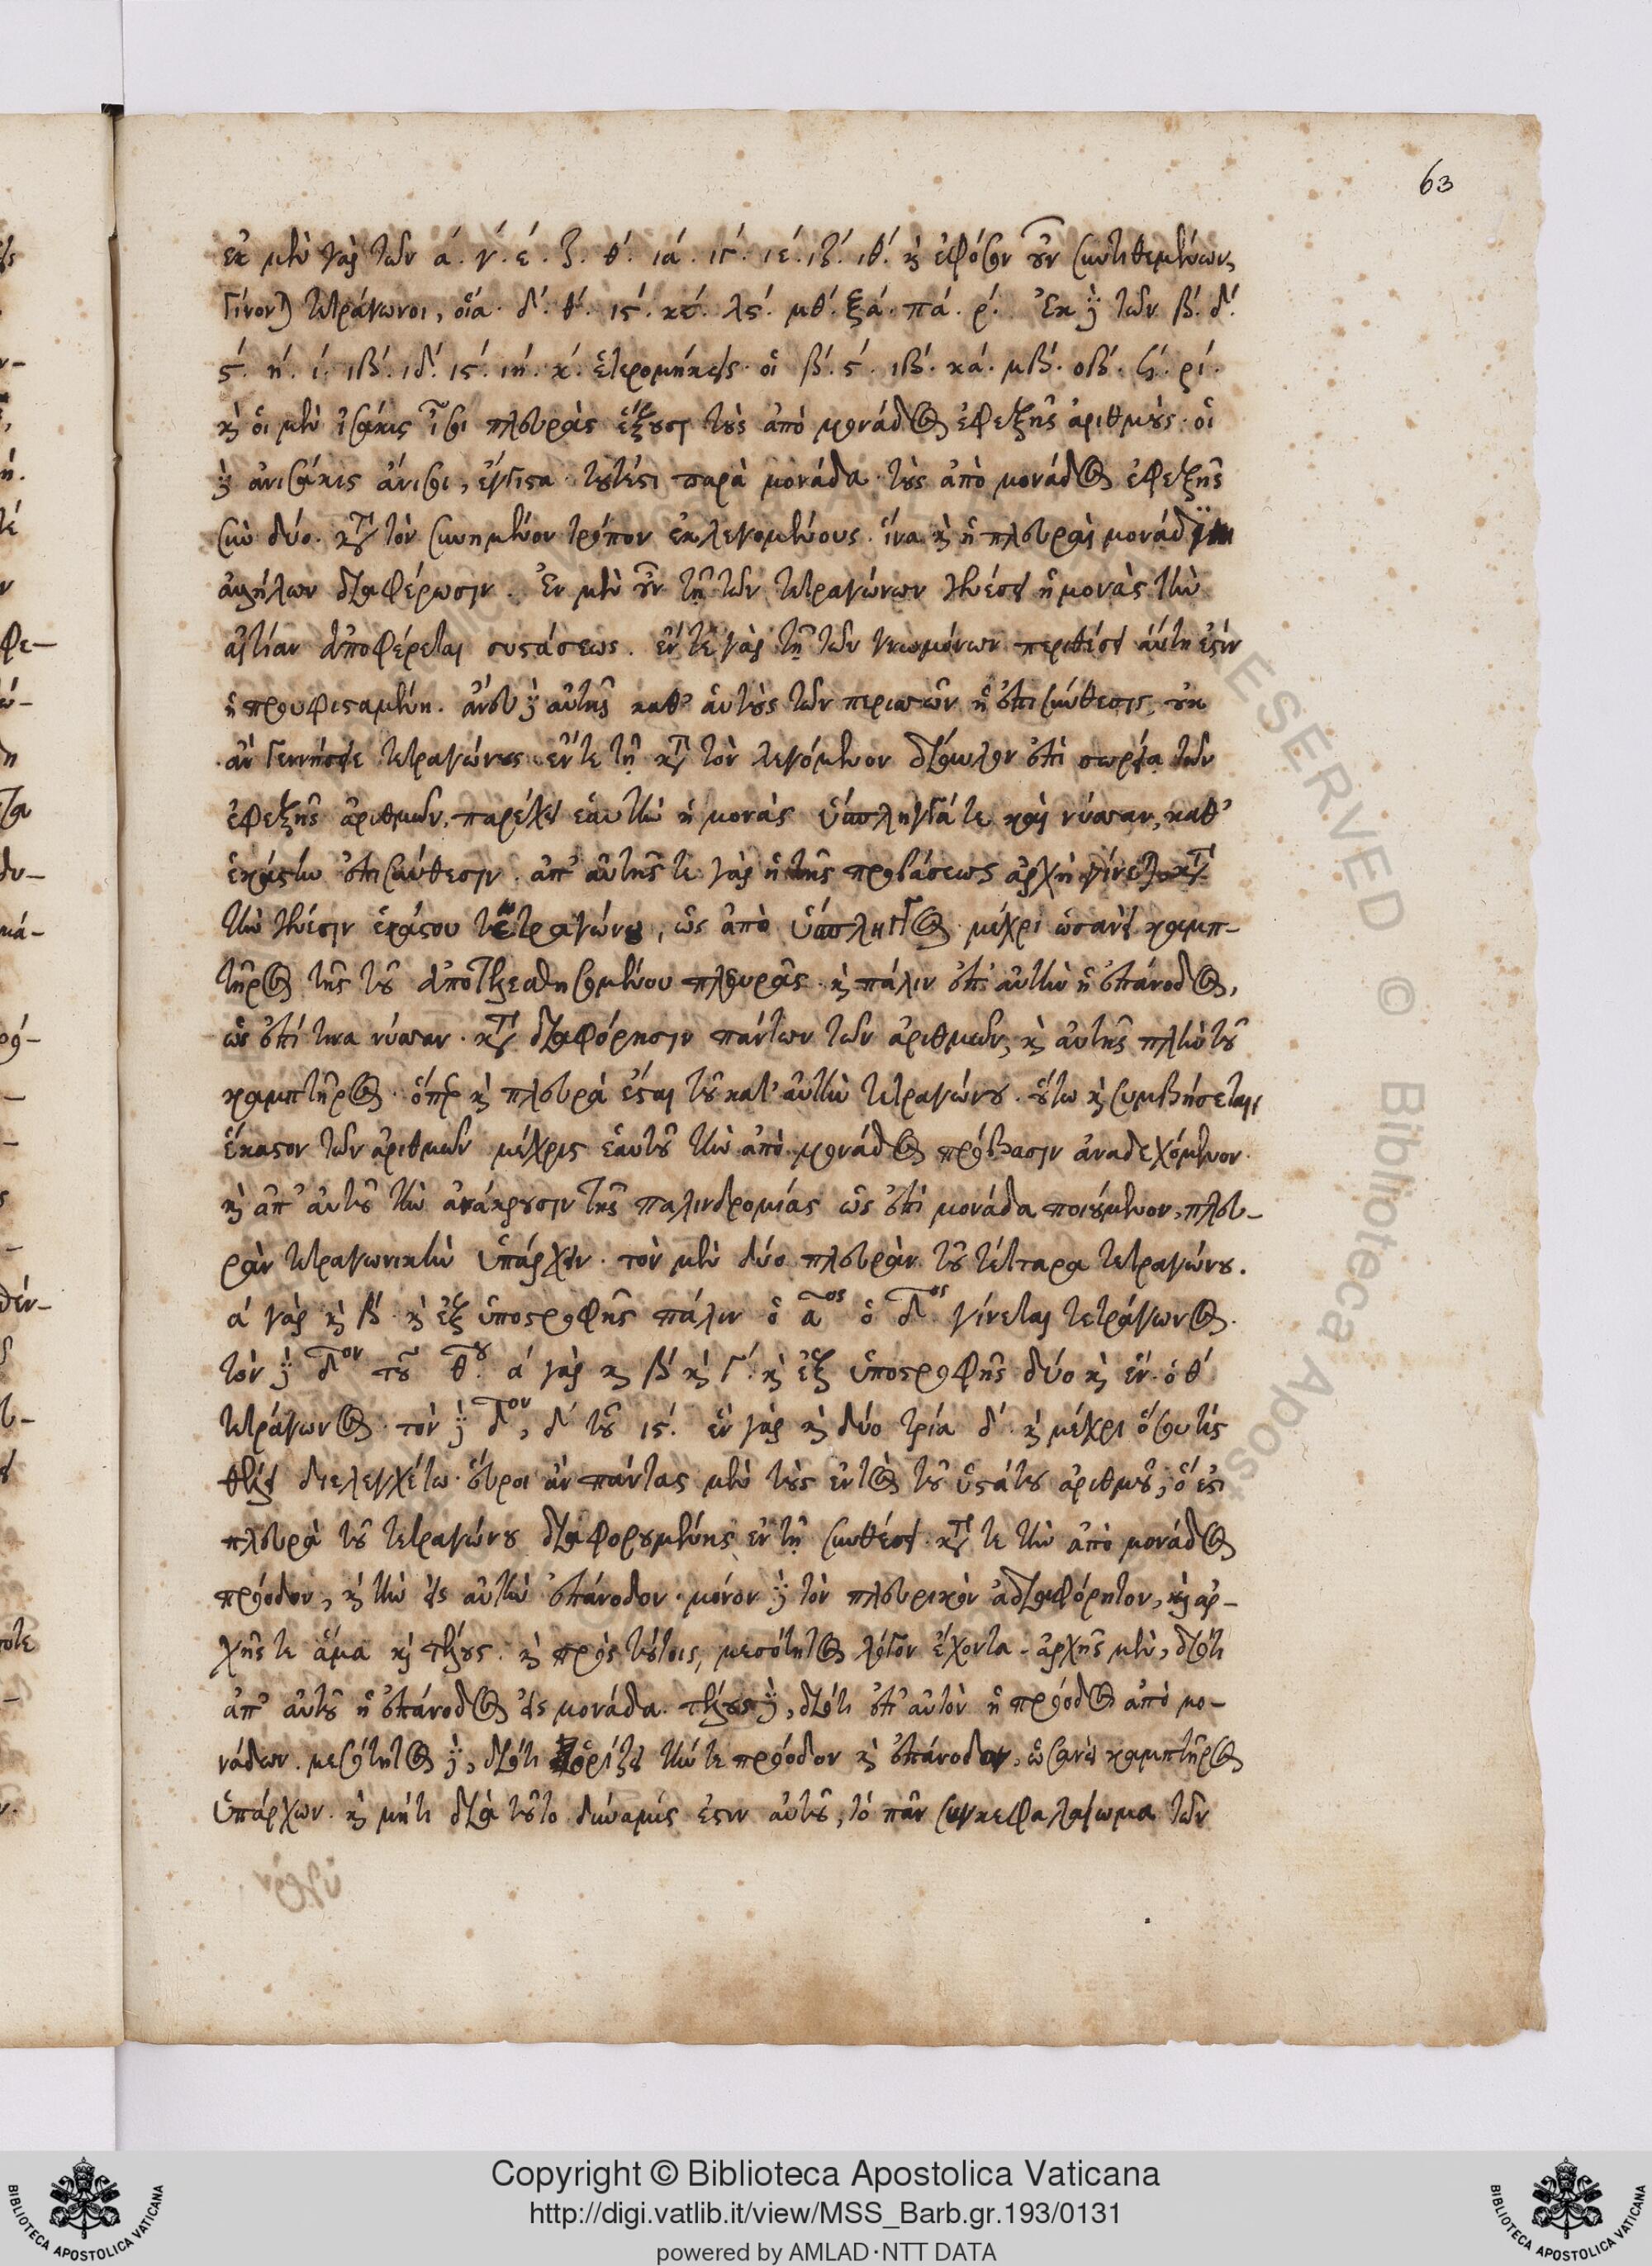 63
ἐκ μὲν γὰρ τῶν ά. γ΄. έ. ζ΄. θ΄. ιά. ιγ΄. ιέ. ιζ΄. ιθ΄. κὶ ἐφόσον οὖν συντιθεμένων,
γίνονται τετράγωνοι, οἷα· δ΄. θ΄. ις΄. κέ. λς΄. μθ΄. ξά. πά. ρ΄. Ἐκ δὲ τῶν β΄. δ΄.
ς΄. ή. ί. ιβ΄. ιδ΄. ις΄. ιή. κ΄. ἑτερομήκεις· οἱ β΄. ς΄. ιβ΄. κά. μβ΄. οβ΄. ϟ΄. ρί.
κὶ οἱ μὲν ἰσάκις ἴσοι πλευρὰς ἕξουσι τοὺς ἀπὸ μονάδος ἐφεξῆς ἀριθμούς· οἱ
δὲ ἀνισάκις ἄνισοι, ἔγγιστα· τουτέστι παρὰ μονάδα· τοὺς ἀπὸ μονάδος ἐφεξῆς
σὺν δύο. κατὰ τὸν συνημμένον τρόπον ἐκλεγομένους. ἵνα κὶ ἡ πλευραὶ μονάδι
ἀλλήλων διαφέρωσιν. Ἐν μὲν οὖν τῇ τῶν τετραγώνων γενέσει ἡ μονὰς τὴν
αἰτίαν ἀποφέρεται συστάσεως. ἔν τε γὰρ τῇ τῶν γνωμόνων περιθέσει αὐτή ἐστιν
ἡ προυφισταμένη. ἄνευ δὲ αὐτῆς καθ' αὑτοὺς τῶν περισσῶν ἡ ἐπισύνθεσις, οὐκ
ἂν γεννήσειε τετραγώνους· ἔν τε τῇ κατὰ τὸν λεγόμενον δίαυλον ἐπὶ σωρείᾳ τῶν
ἐφεξῆς ἀριθμῶν, παρέχει ἑαυτὴν ἡ μονὰς ὕσπληγγά τε καὶ νύσσαν, καθ'
ἑκάστην ἐπισύνθεσιν. ἀπ' αὐτῆς τε γὰρ ἡ τῆς προβάσεως ἀρχὴ γίνεται κατὰ
τὴν γένεσιν ἑκάστου τετραγώνου, ὡς ἀπὸ ὕσπληγγος μέχρι ὡσανεὶ καμπ-
τῆρος τῆς τοῦ ἀποτελεσθησομένου πλευρᾶς· κὶ πάλιν ἐπ' αὐτὴν ἡ ἐπάνοδος,
ὡς ἐπί τινα νύσσαν. κατὰ διαφόρησιν πάντων τῶν ἀριθμῶν, κὶ αὐτῆς πλὴν τοῦ
καμπτῆρος· ὅπερ κὶ πλευρὰ ἔσται τοῦ κατ' αὐτὴν τετραγώνου. οὕτω κὶ συμβήσεται,
ἕκαστον τῶν ἀριθμῶν μέχρις ἑαυτοῦ τὴν ἀπὸ μονάδος πρόβασιν ἀναδεχόμενον.
κὶ ἀπ' αὐτοῦ τὴν ἀνάκρουσιν τῆς παλινδρομίας ὡς ἐπὶ μονάδα ποιούμενον, πλευ-
ρὰν τετραγωνικὴν ὑπάρχειν. τὸν μὲν δύο πλευρὰν τοῦ τέσσαρα τετραγώνου.
ά γὰρ κὶ β΄ κὶ ἐξ ὑποστροφῆς πάλιν ὁ α^ος ὁ δ^ος γίνεται τετράγωνος.
τὸν δὲ δ^ον τοῦ θ^ου. ά γὰρ κὶ β΄ κὶ γ΄. κὶ ἐξ ὑποστροφῆς δύο κὶ ἕν· ὁ θ΄
τετράγωνος· τὸν δὲ δ^ον, δ΄ τοῦ ις΄. ἓν γὰρ κὶ δύο τρία δ΄ κὶ μέχρι ὅσου τὶς
θέλει διελεγχέτω· εὕροι ἂν πάντας μὲν τοὺς ἐντὸς τοῦ ὑστάτου ἀριθμοῦ, ὅ ἐστι
πλευρὰ τοῦ τετραγώνου διαφορουμένης ἐν τῇ συνθέσει. κατά τε τὴν ἀπὸ μονάδος
πρόοδον, κὶ τὴν εἰς αὐτὴν ἐπάνοδον· μόνον δὲ τὸν πλευρικὸν ἀδιαφόρητον, κὶ ἀρ-
χῆς τε ἅμα κὶ τέλους. κὶ πρὸς τούτοις, μεσότητος λόγον ἔχοντα. ἀρχῆς μὲν, διότι
ἀπ' αὐτοῦ ἡ ἐπάνοδος εἰς μονάδα. τέλους δὲ, διότι ἐπ' αὐτὸν ἡ πρόοδος ἀπὸ μο-
νάδων. μεσότητος δὲ, διότι ὁρίζει τήν τε πρόοδον κὶ ἐπάνοδον, ὡσανεὶ καμπτῆρος
ὑπάρχων. κὶ μήτι διὰ τοῦτο δύναμίς ἐστιν αὐτοῦ, τὸ πᾶν συγκεφαλαίωμα τῶν
Copyright © Biblioteca Apostolica Vaticana
http://digi.vatlib.it/view/MSS_Barb.gr.193/0131
powered by AMLAD·NTT DATA